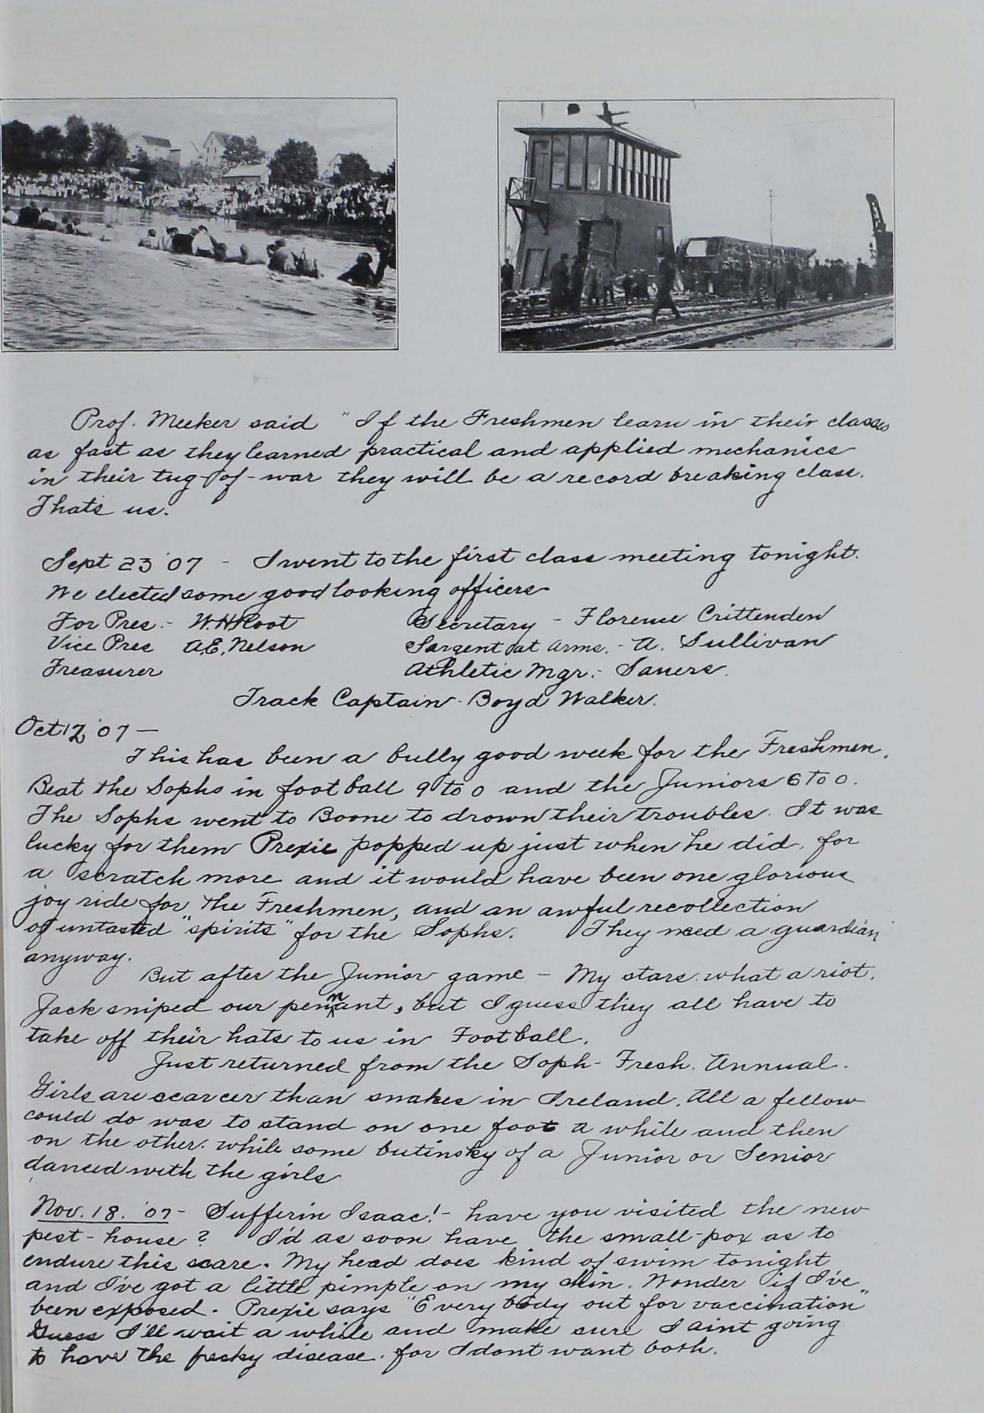 Prof. Meeker said "If the Freshmen learn in their classes
as fast as they learned practical and applied mechanics
in their tug-of-war they will be a record breaking class.
Thats us.
Sept 23 '07 - I went to the first class meeting tonight.
We elected some good looking officers
For Pres.- W.H.Root Secretary - Florence Crittenden
Vice Pres A.E. Nelson Sargent at Arms.- A. Sullivan
Treasurer Athletic Mgr.- Sauers.
Track Captain - Boyd Walker.
Oct 12 '07 -
This has been a bully good week for the Freshmen.
Beat the Sophs in football 9 to 0 and the Juniors 6 to 0.
The Sophs went to Boone to drown their troubles. It was
lucky for them Prexie popped up just when he did, for
a scratch more and it would have been one glorious
joy ride for the Freshmen, and an awful recollection
of untasted "spirits" for the Sophs. They need a guardian
anyway.
But after the Junior game - My stars what a riot.
Jack sniped our pennant, but I guess they all have to
take off their hats to us in Football.
Just returned from the Soph-Fresh. Annual.
Girls are scarcer than snakes in Ireland. All a fellow
could do was to stand on one foot a while and then
on the other. while some butinsky of a Junior or Senior
danced with the girls
Nov. 18. '07 - Sufferin Isaac! - have you visited the new
pest-house? I'd as soon have the small-pox as to
endure this scare. My head does kind of swim tonight
and I've got a little pimple on my skin. Wonder if I've
been exposed. Prexie says "Every body out for vaccination"
Guess I'll wait a while and make sure I aint going
to have the pesky disease. for I dont want both.